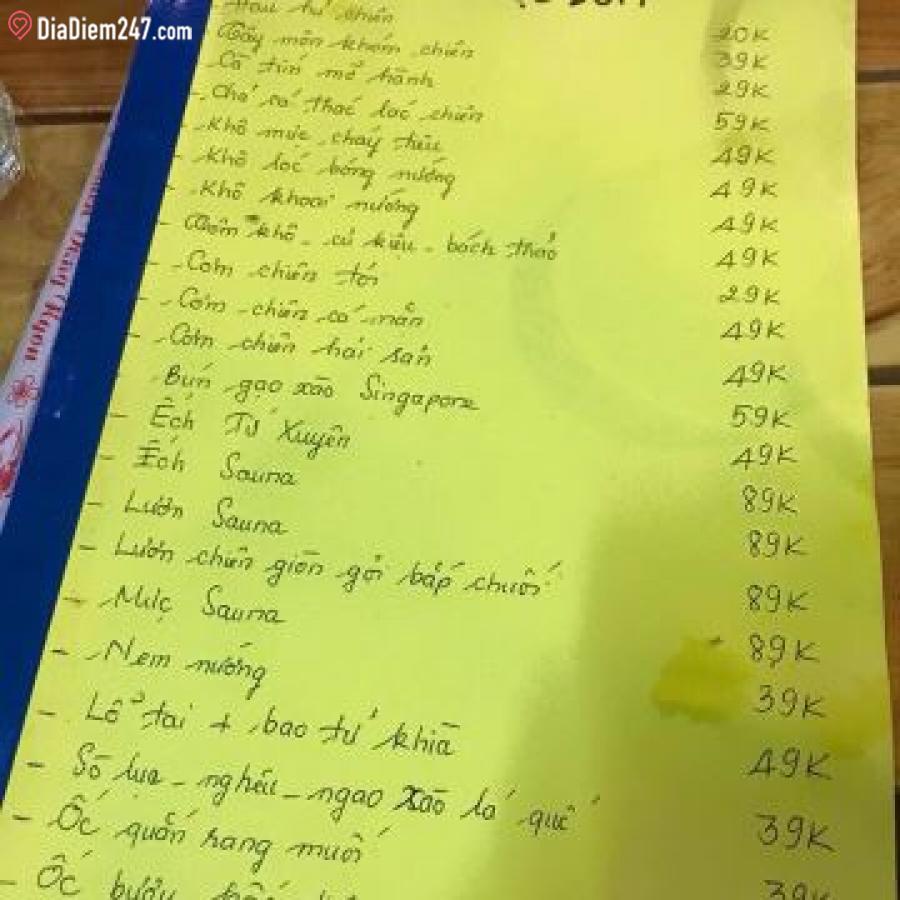 DiaDiem247.com
chiên 20K
khóm chiên 39K
Cà tím mỡ hành 29K
- Chả cá thác lác chiên 59K
- Khô mực cháy tiêu 49K
- Khô lóc bóng nướng 49K
- Khô khoai nướng 49K
- Tôm khô - củ kiệu - bách thảo 49K
- Cơm chiên tỏi 29K
- Cơm chiên cá mặn 49K
- Cơm chiên hải sản 49K
- Bún gạo xào Singapore 59K
- Ếch Tứ Xuyên 49K
- Ếch Sauna 89K
- Lươn Sauna 89K
- Lươn chiên giòn gỏi bắp chuối 89K
- Mực Sauna 89K
- Nem nướng 39K
- Lổ tai + bao tử khìa 49K
- Sò lụa - nghêu - ngao xào lá quế 39K
- Ốc quắn rang muối 39K
- Ốc bươu